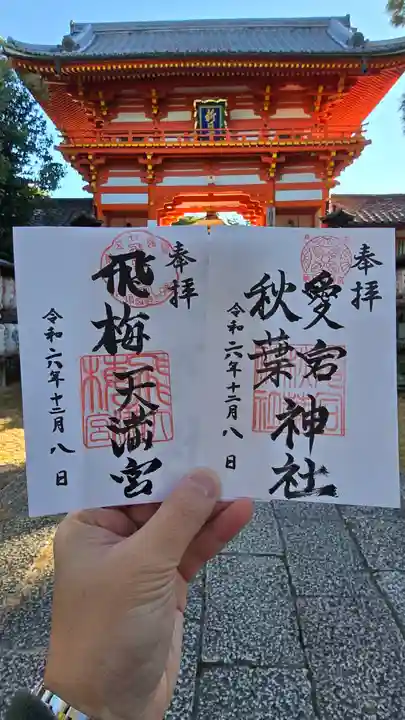 奉拝
愛宕神社
秋葉
令和六年十二月八日
奉拝
飛梅天満宮
令和六年十二月八日